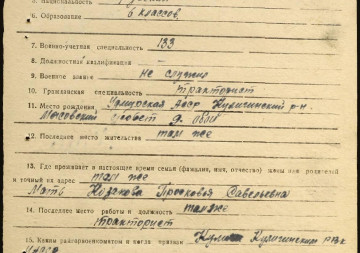 6. Образование 6 классов
7. Военно-учетная специальность 133
8. Должностная квалификация
9. Военное звание не служил
10. Гражданская специальность тракторист
11. Место рождения Удмурская АССР р-н.
с/совет д.
12. Последнее место жительства там же
13. Где проживает в настоящее время семья (фамилия, имя, отчество) жены или родителей
и точный их адрес там же
Мать Козакова Просковья Савельевна
14. Последнее место работы и должность там же
тракторист
15. Каким райвоенкоматом и когда призван РВК